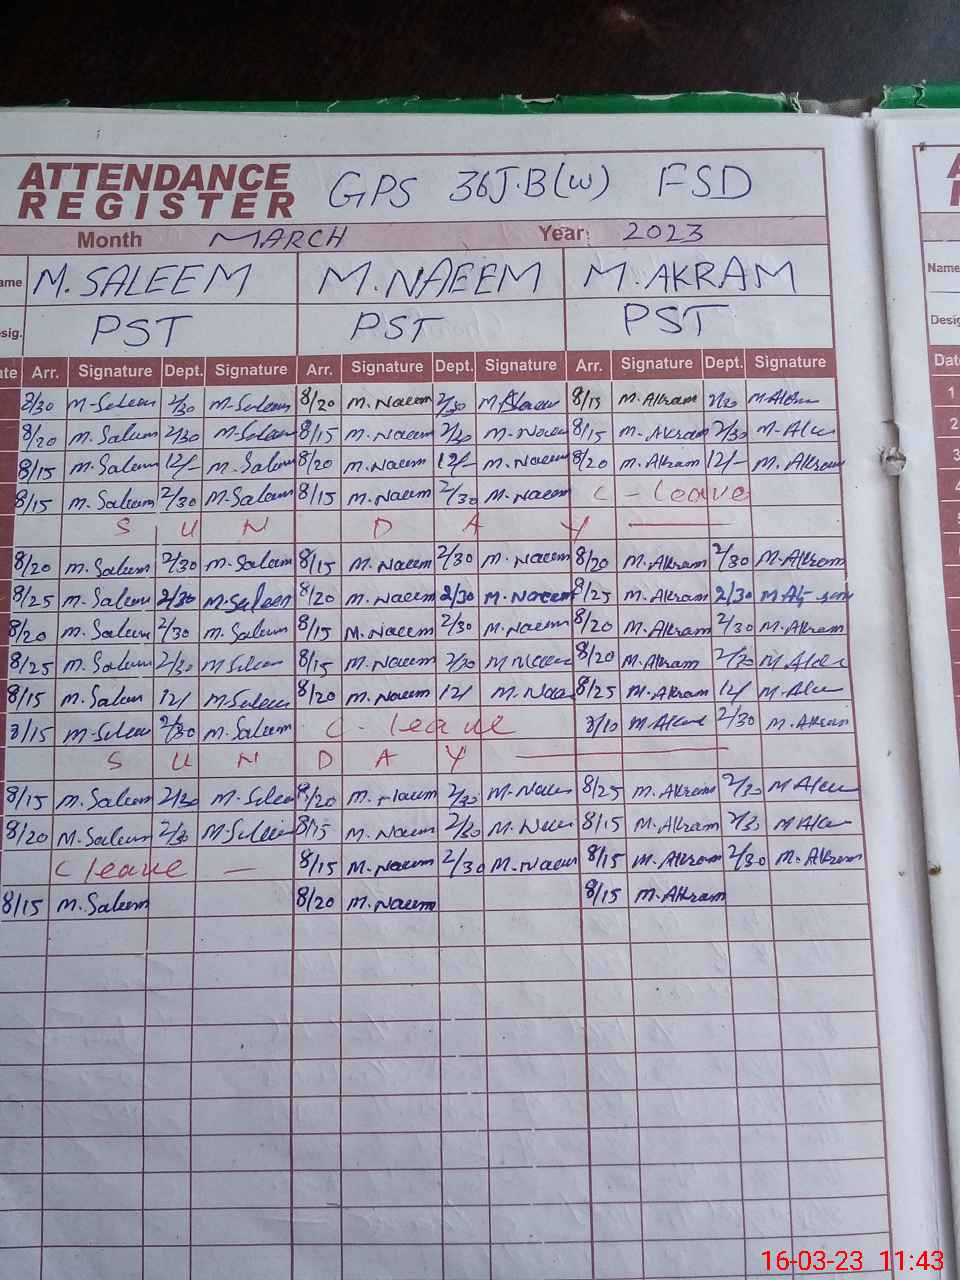 ATTENDANCE REGISTER GPS 36J.B(W) FSD
Month MARCH Year: 2023
ame M. SALEEM M. NAEEM M. AKRAM Name
sig. PST PST PST Desig
te Arr. Signature Dept. Signature Arr. Signature Dept. Signature Arr. Signature Dept. Signature Dat
8/30 M-Saleem 2/30 M-Saleem 8/20 M. Naeem 2/30 M. Naeem 8/15 M. Akram 2/30 M. Akram 1
8/20 M. Saleem 2/30 M-Saleem 8/15 M. Naeem 2/30 M-Naeem 8/15 M. Akram 2/30 M-Akram 2
8/15 M. Saleem 12/- M. Saleem 8/20 M. Naeem 12/- M. Naeem 8/20 M. Akram 12/- M. Akram 3
8/15 M. Saleem 2/30 M. Saleem 8/15 M. Naeem 2/30 M. Naeem C - leave
S U N D A Y
8/20 M. Saleem 2/30 M. Saleem 8/15 M. Naeem 2/30 M. Naeem 8/20 M. Akram 2/30 M. Akram
8/25 M. Saleem 2/30 M. Saleem 8/20 M. Naeem 2/30 M. Naeem 8/25 M. Akram 2/30
8/20 M. Saleem 2/30 M. Saleem 8/15 M. Naeem 2/30 M. Naeem 8/20 M. Akram 2/30 M. Akram
8/25 M. Saleem 2/30 M Saleem 8/15 M. Naeem 2/30 M Naeem 8/20 M. Akram 2/30 M. Akram
8/15 M. Saleem 12/ M. Saleem 8/20 M. Naeem 12/ M. Naeem 8/25 M. Akram 12/ M. Akram
8/15 M-Saleem 2/30 M. Saleem C - leave 8/10 M. Akram 2/30 M. Akram
S U N D A Y
8/15 M. Saleem 2/30 M. Saleem 8/20 M. Naeem 2/30 M. Naeem 8/25 M. Akram 2/30 M Akram
8/20 M. Saleem 2/30 M-Saleem 8/15 M. Naeem 2/30 M. Naeem 8/15 M. Akram 2/30 M Akram
C leave — 8/15 M. Naeem 2/30 M. Naeem 8/15 M. Akram 2/30 M. Akram
8/15 M. Saleem 8/20 M. Naeem 8/15 M. Akram
16-03-23 11:43